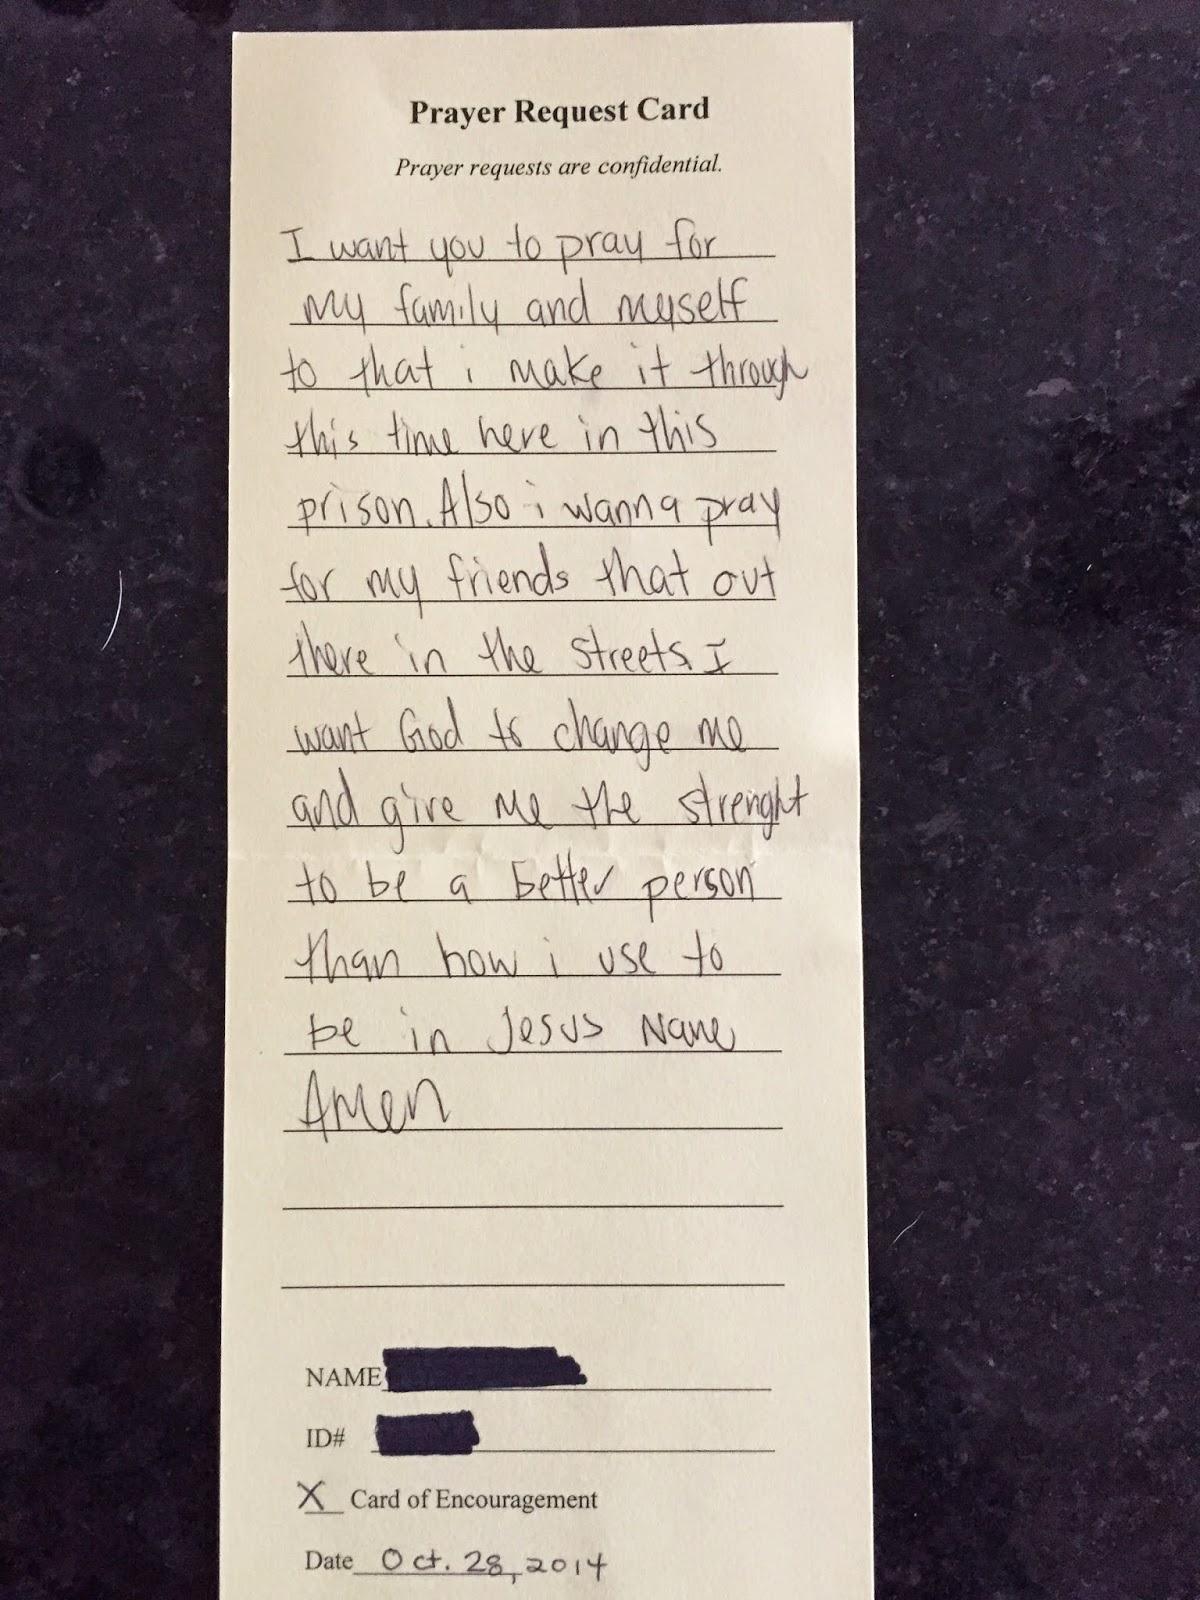 Prayer Request Card
Prayer requests are confidential.
I want you to pray for
my family and myself
to that i make it through
this time here in this
prison. Also i wanna pray
for my friends that out
there in the streets. I
want God to change me
and give me the strenght
to be a better person
than how i use to
be in Jesus Name
Amen
NAME
ID#
X Card of Encouragement
Date Oct. 28, 2014